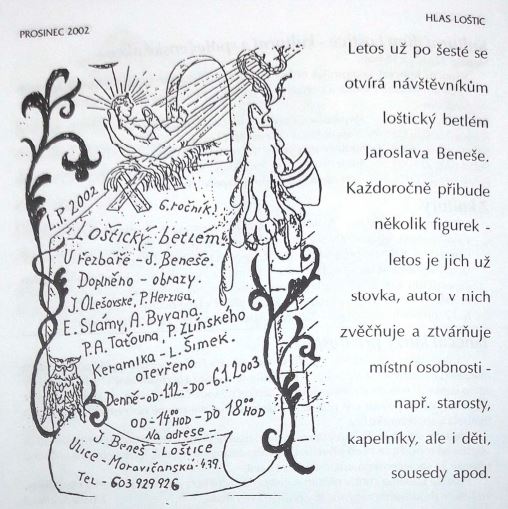 PROSINEC 2002
HLAS LOŠTIC
L.P. 2002
6. ročník!
Loštický betlém
U řezbáře - J. Beneše.
Doplněno - obrazy.
J. Olešovské, P. Herziga,
E. Slámy, A. Byvana.
P.A. Taťouna, P. Zlínského
Keramika - L. Šimek.
OTEVŘENO
Denně - od - 1.12. - DO - 6.1. 2003
OD - 14°° HOD - DO 18°° HOD
Na adrese -
J. Beneš - Loštice
Ulice - Moravičanská - 439.
Tel - 603 929 926
Letos už po šesté se
otvírá návštěvníkům
loštický betlém
Jaroslava Beneše.
Každoročně přibude
několik figurek -
letos je jich už
stovka, autor v nich
zvěčňuje a ztvárňuje
místní osobnosti -
např. starosty,
kapelníky, ale i děti,
sousedy apod.